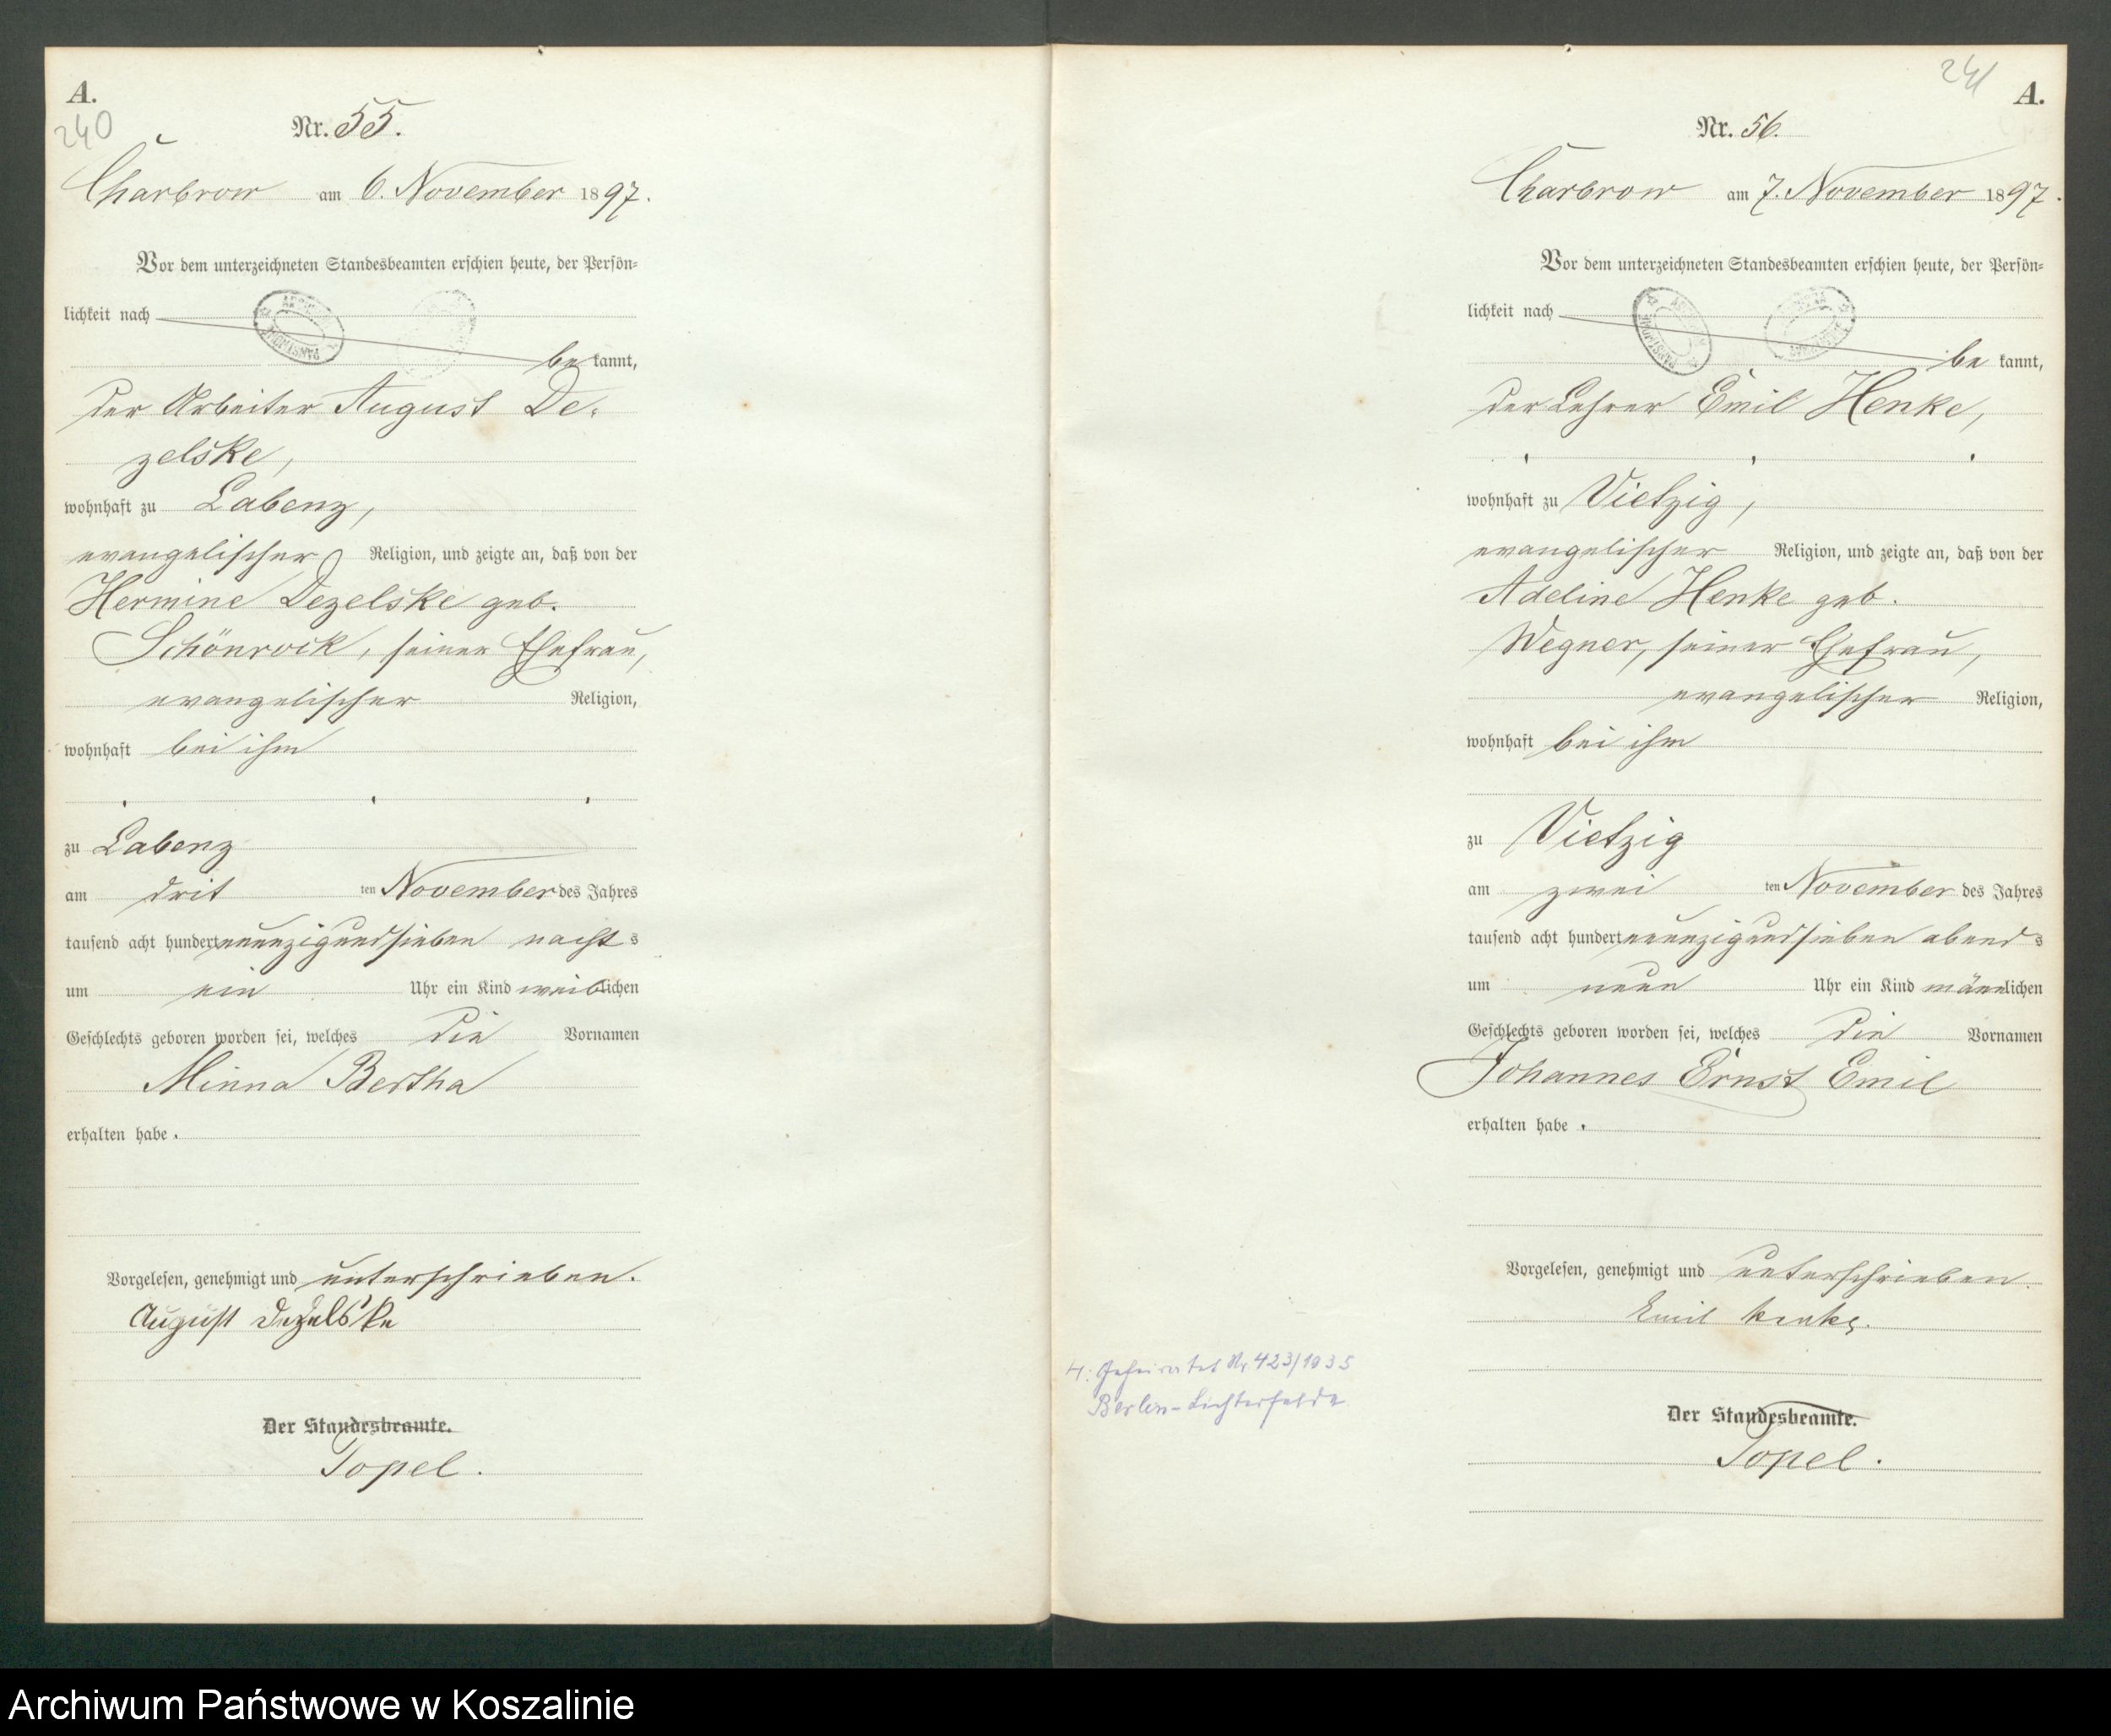 A.
240
Nr. 55.
Charbrow am 6. November 1897.
Vor dem unterzeichneten Standesbeamten erschien heute, der Persön=
lichkeit nach
be kannt,
der Arbeiter August De=
zelske,
wohnhaft zu Labenz,
evangelischer Religion, und zeigte an, daß von der
Hermine Dezelske geb.
Schönrock, seiner Ehefrau,
evangelischer Religion,
wohnhaft bei ihm
zu Labenz
am drit ten November des Jahres
tausend acht hundert neunzig und sieben nachts
um ein Uhr ein Kind weiblichen
Geschlechts geboren worden sei, welches die Vornamen
Minna Bertha
erhalten habe.
Vorgelesen, genehmigt und unterschrieben.
August Dezelske
Der Standesbeamte.
Topel.
241
A.
Nr. 56.
Charbrow am 7. November 1897.
Vor dem unterzeichneten Standesbeamten erschien heute, der Persön=
lichkeit nach
be kannt,
der Lehrer Emil Henke,
wohnhaft zu Vietzig,
evangelischer Religion, und zeigte an, daß von der
Adeline Henke geb.
Wegner, seiner Ehefrau,
evangelischer Religion,
wohnhaft bei ihm
zu Vietzig
am zwei ten November des Jahres
tausend acht hundert neunzig und sieben abends
um neun Uhr ein Kind männlichen
Geschlechts geboren worden sei, welches die Vornamen
Johannes Ernst Emil
erhalten habe.
Vorgelesen, genehmigt und unterschrieben
Emil Henke.
Der Standesbeamte.
Topel.
H: Geheiratet Nr. 423/1935
Berlin-Lichterfelde
Archiwum Państwowe w Koszalinie